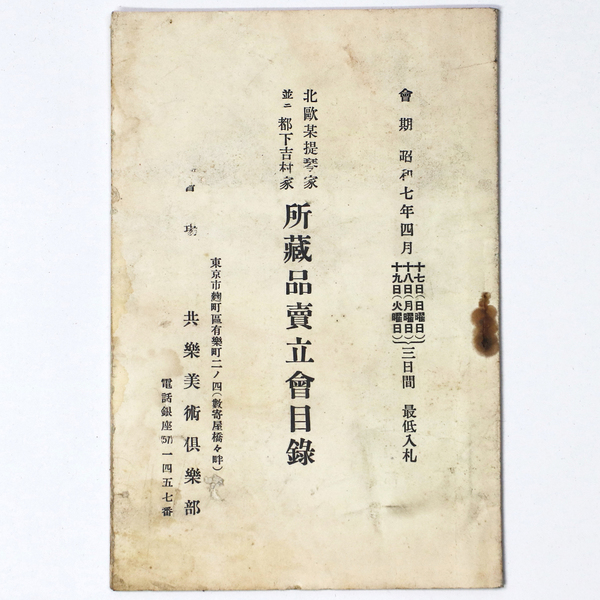 會期 昭和七年四月
十七日(日曜日)
十八日(月曜日)
十九日(火曜日)
三日間 最低入札
北歐某提琴家
並ニ 都下吉村家
所藏品賣立會目錄
會場
東京市麴町區有樂町二ノ四(數寄屋橋々畔)
共樂美術俱樂部
電話銀座(57)一四五七番